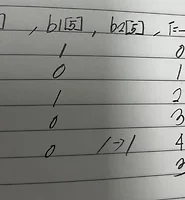 ] , b1[5] , b2[5] , i=
1 0
0 1
1 2
0 3
0 1→1 4